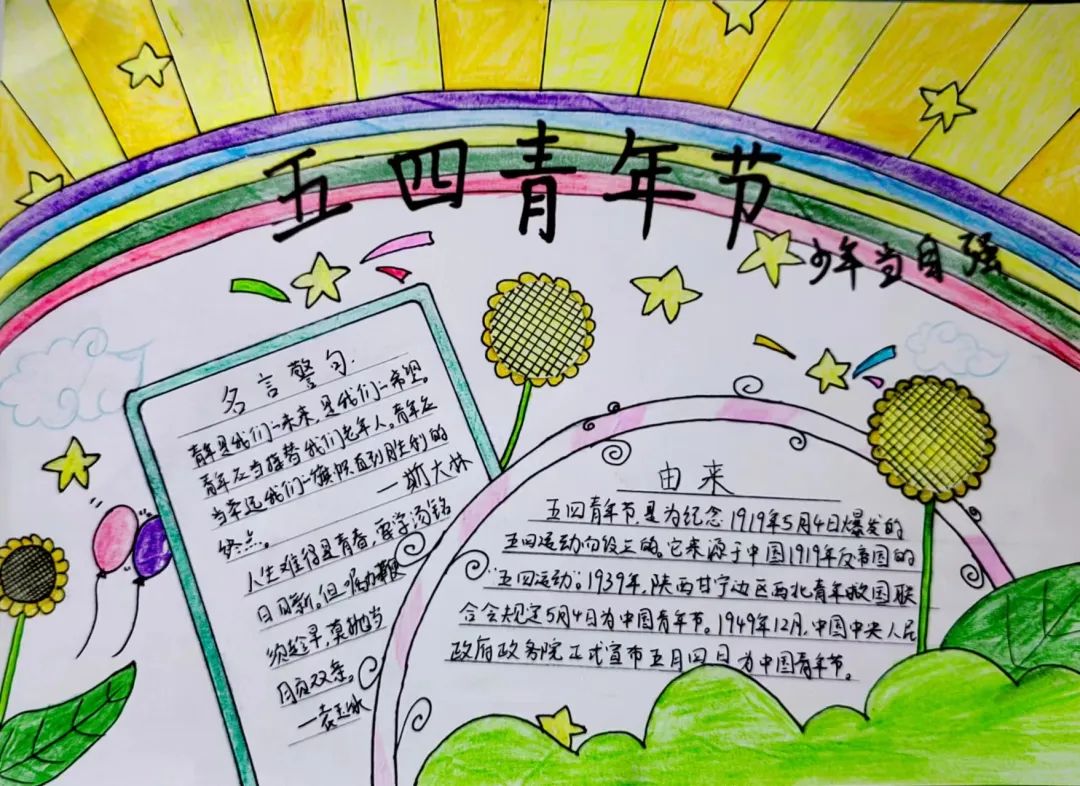 五四青年节
少年当自强
名言警句
青年是我们一未来,是我们一希望。
青年应当接替我们老年人。青年应
当举远我们一旗帜直到胜利的
终点。
—斯大林
人生难得是青春,要学汤铭
日日新。但嘱加鞭
须趁早,莫抛当
月负双亲。
—袁玉冰
由来
五四青年节,是为纪念1919年5月4日爆发的
五四运动而设立的。它来源于中国1919年反帝国的
“五四运动”。1939年,陕西甘宁边区西北青年救国联
合会规定5月4日为中国青年节。1949年12月,中国中央人民
政府政务院正式宣布五月四日为中国青年节。